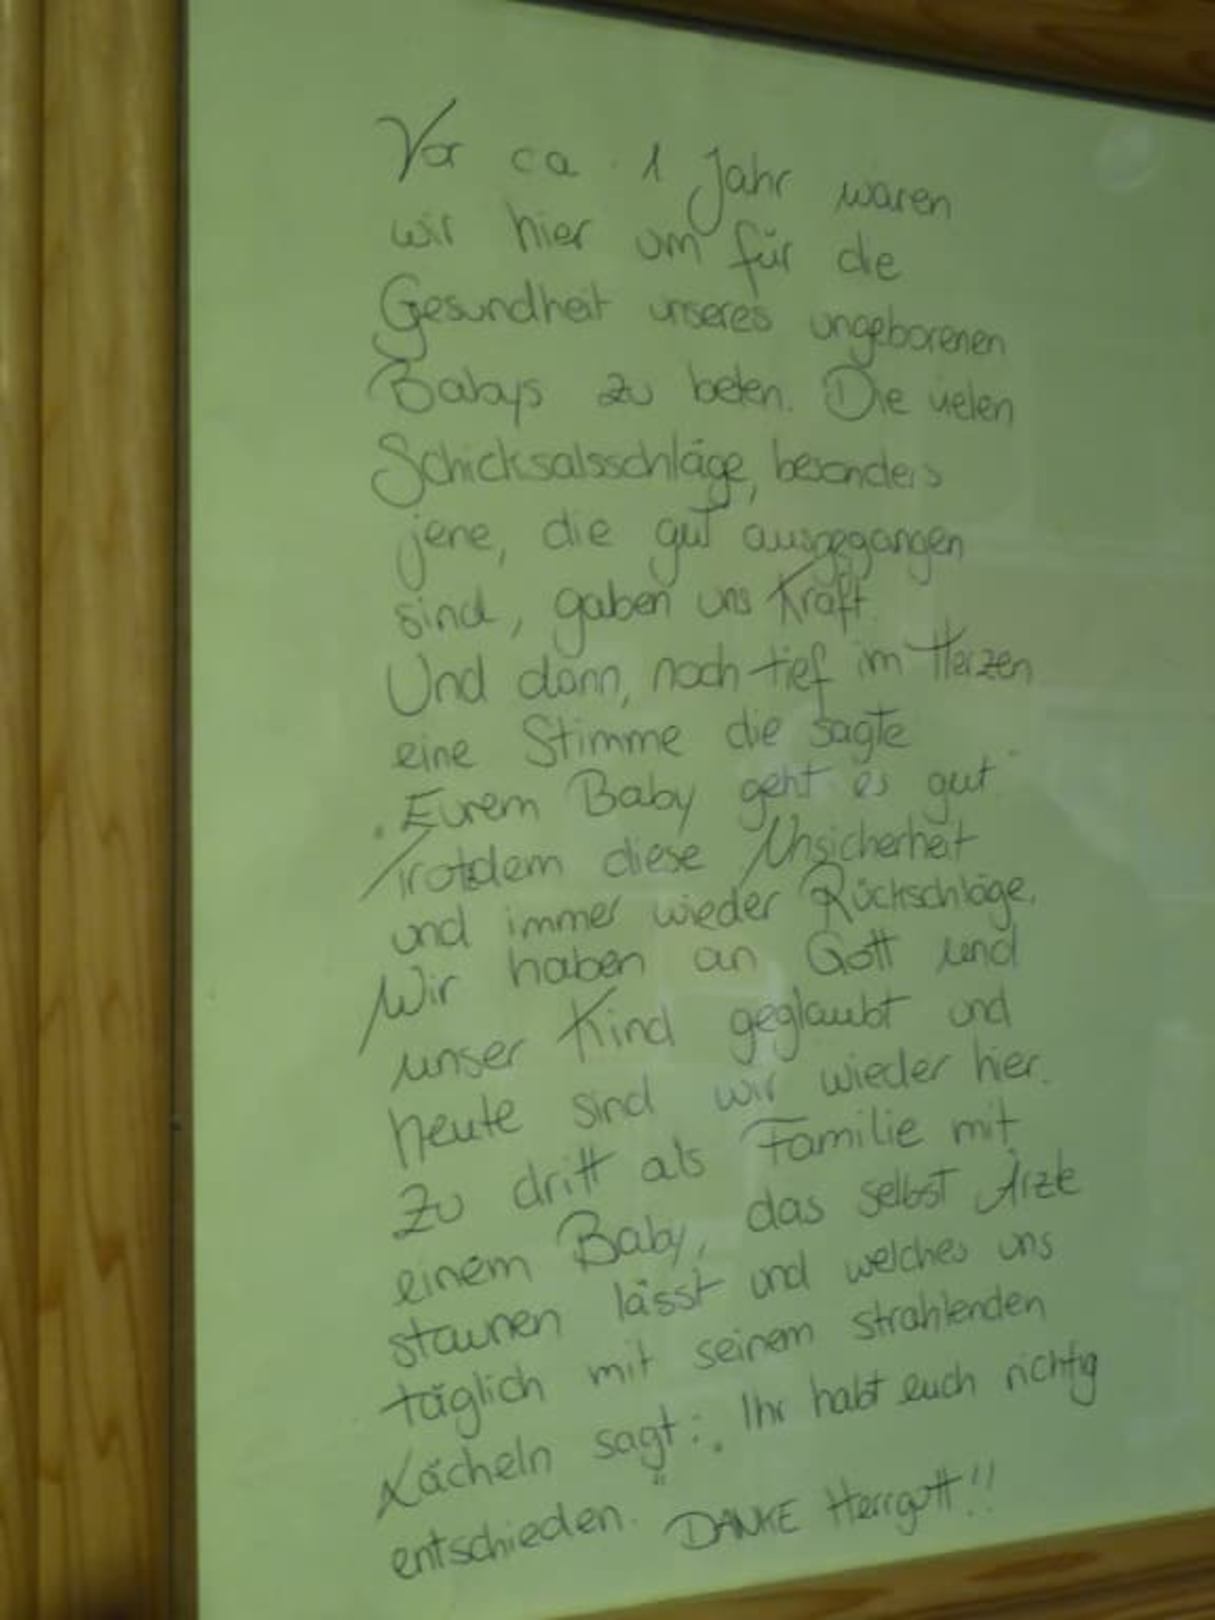 Vor ca. 1 Jahr waren
wir hier um für die
Gesundheit unseres ungeborenen
Babys zu beten. Die vielen
Schicksalsschläge, besonders
jene, die gut ausgegangen
sind, gaben uns Kraft.
Und dann, noch tief im Herzen
eine Stimme die sagte
"Eurem Baby geht es gut."
Trotzdem diese Unsicherheit
und immer wieder Rückschläge.
Wir haben an Gott und
unser Kind geglaubt und
heute sind wir wieder hier.
Zu dritt als Familie mit
einem Baby, das selbst Ärzte
staunen lässt und welches uns
täglich mit seinem strahlenden
Lächeln sagt: "Ihr habt euch richtig
entschieden." DANKE Herrgott!!